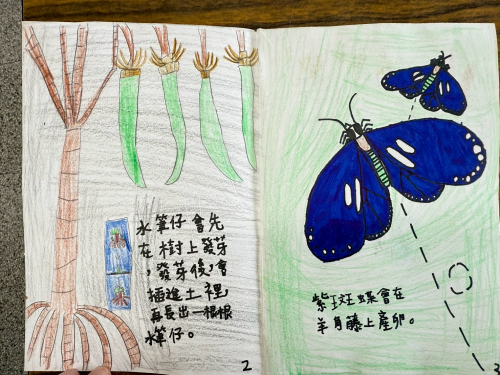 水筆仔會先
在樹上發芽
,發芽後,會
插進土裡,
再長出一根根
水筆仔。
2
紫斑蝶會在
羊角藤上產卵。